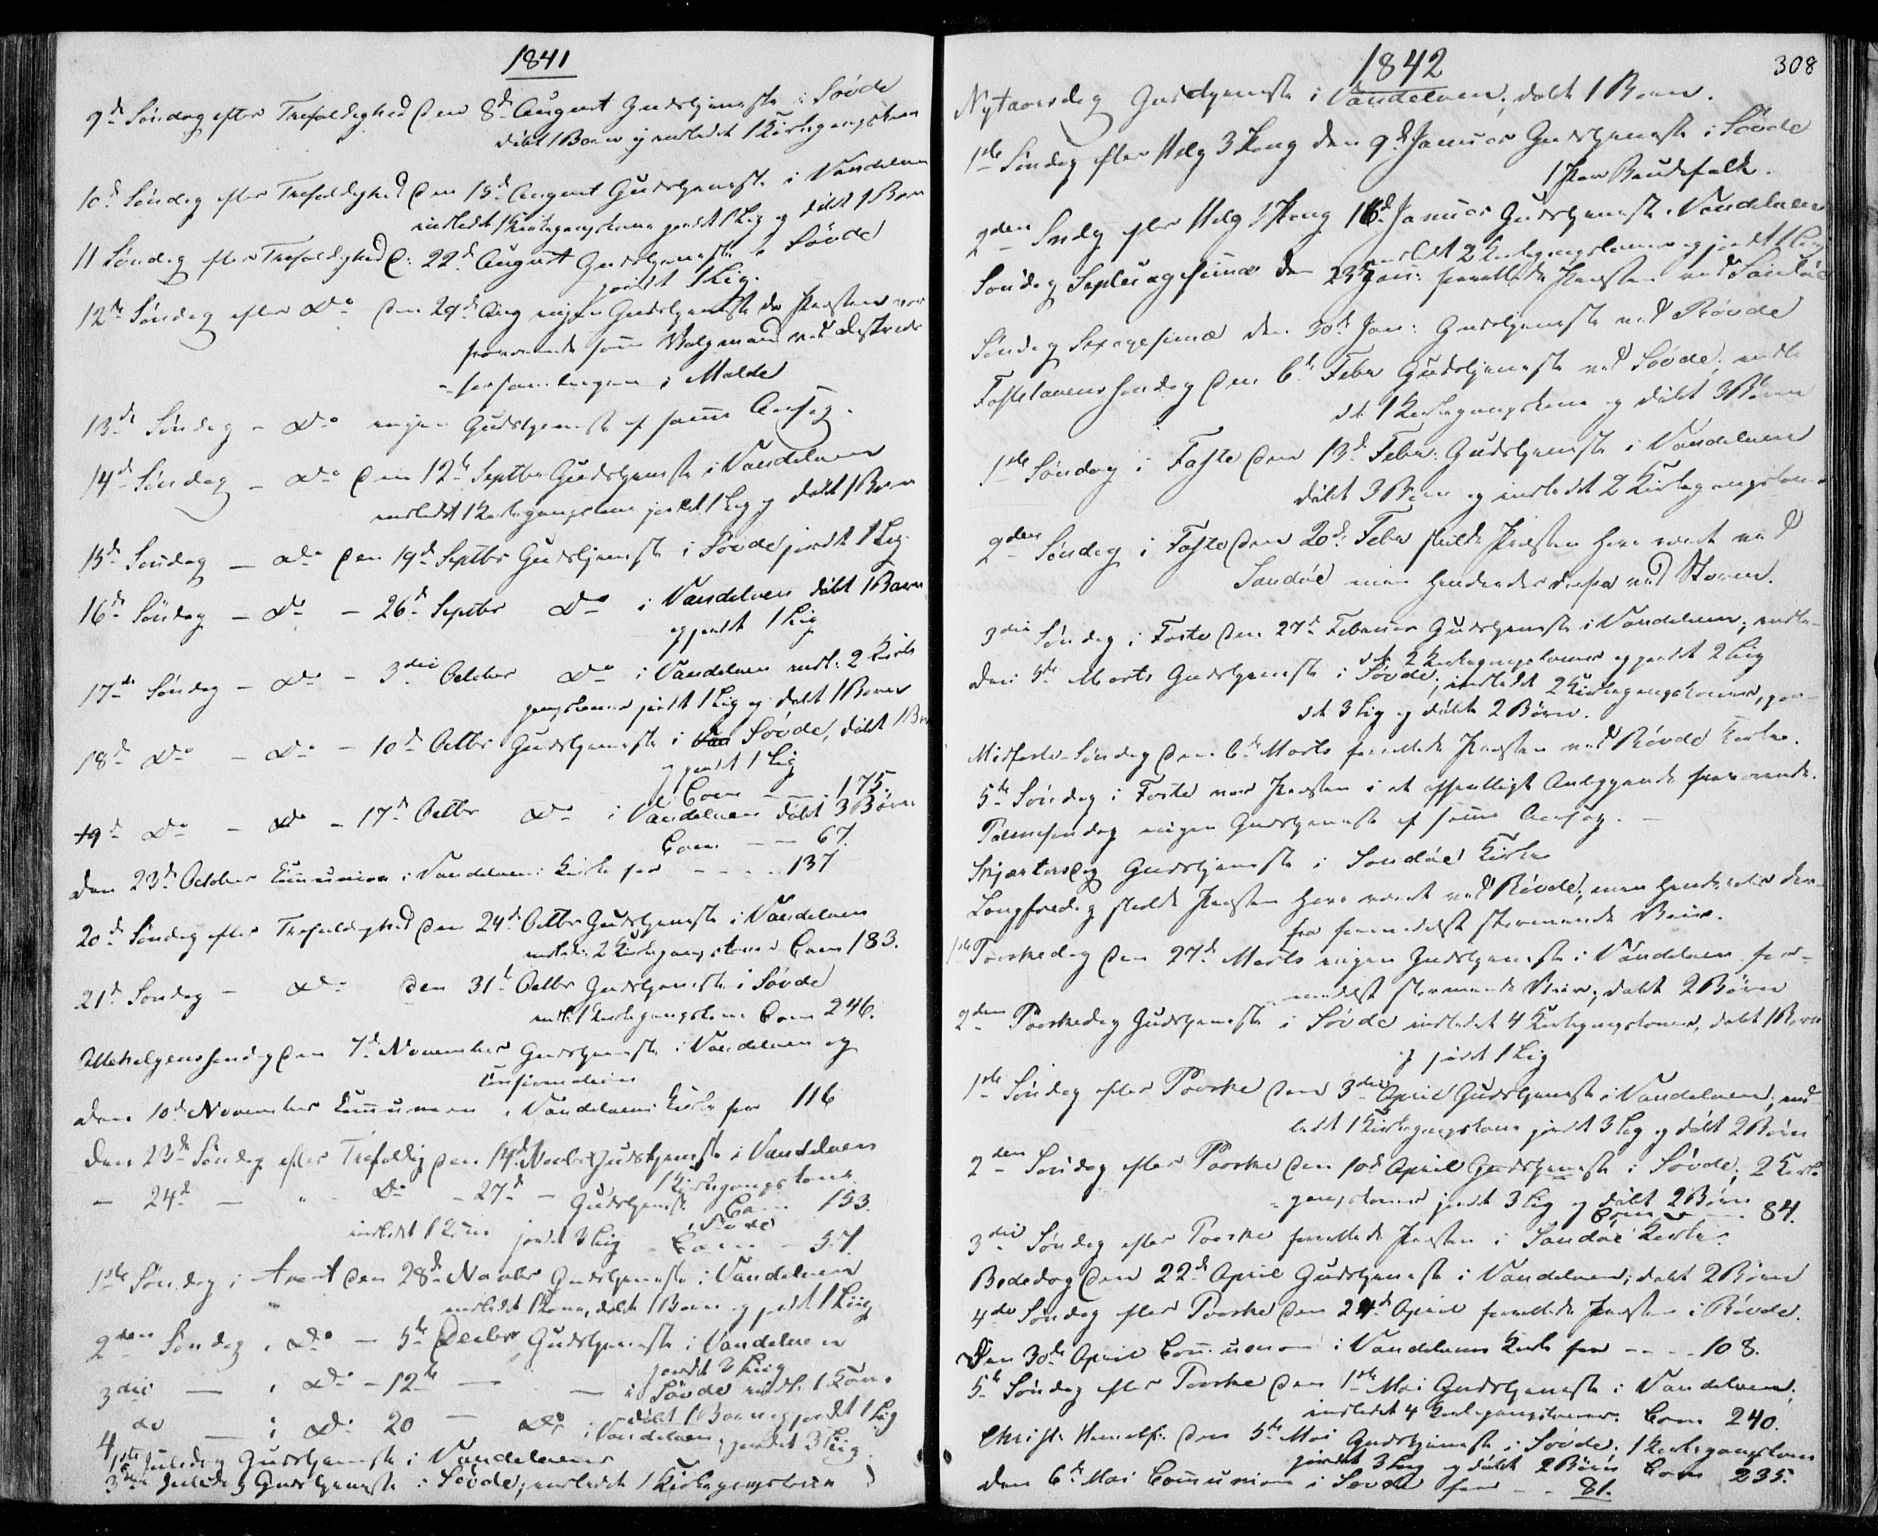 1841
9de Søndag efter Trefoldighed den 8de August Gudstjeneste i Søvde
døbt 1 Barn og indledet 1 Kirkegangskone
10de Søndag efter Trefoldighed den 15de August Gudstjeneste i Vandelven
indledet 1 Kirkegangskone jordet 1 Lig og døbt 1 Barn
11 Søndag efter Trefoldighed d: 22de August Gudstjeneste i Søvde
jordet 1 Lig.
12te Søndag efter Do den 29de Aug ingen Gudstjeneste da Præsten var
fraværende som Valgmand ved Districts
forsamlingen i Molde
13de Søndag - Do ingen Gudstjeneste af samme Aarsag.
14de Søndag - Do den 12te Septbr Gudstjeneste i Vandelven
indledet 1 Kirkegangskone jordet 1 Lig og døbt 1 Barn
15de Søndag - Do den 19de Septbr Gudstjeneste i Søvde jordet 1 Lig.
16de Søndag - Do - 26de Septbr Do i Vandelven døbt 1 Barn
og jordet 1 Lig
17de Søndag - Do - 3die October Do i Vandelven indl: 2 Kirke
gangskoner jordet 1 Lig og døbt 1 Barn
18de Do - Do - 10de Octbr Gudstjeneste i Søvde, døbt 1
og jordet 1 Lig
Com - - 175.
19de Do - Do - 17de Octbr Do i Vandelven døbt 3 Børn
Com - - 67.
den 23de October Communion i Vandelvens Kirke for - - - - 137
20de Søndag efter Trefoldighed den 24de Octbr Gudstjeneste i Vandelven
indled: 2 Kirkegangskoner Com 183.
21de Søndag - Do den 31te Octbr Gudstjeneste i Søvde
indl: 1 Kirkegangskone Com 246.
Allehelgens søndag den 7de November Gudstjeneste i Vandelven og
Confirmation
den 10de November Communion i Vandelvens Kirke for 116
Den 23de Søndag efter Trefoldig den 14de Novbr Gudstjeneste i Vandelven
1 Kirkegangskone
- 24de - Do - 27de - Gudstjeneste Com 153.
i Søvde
indledet 1 Kone jordet 3 Lig - Com - 57.
1ste Søndag i Avent den 28de Novbr Gudstjeneste i Vandelven
indledet 1 Kone, døbt 1 Barn og jordet 1 Liig
2den Søndag i Do - 5te Decbr Gudstjeneste i Vandelven
jordet 3 Liig
3die - i Do - 12te - - i Søvde indl. 1 Kone
døbt 1 Barn og jordet 1 Lig
4de - i Do 20 - Do i Vandelven, jordet 3 Liig.
1ste Juledag Gudstjeneste i Vandelven
3die Juledag Gudstjeneste i Søvde, indledet 1 Kirkegangskone
1842
308
Nytaarsdag Gudstjeneste i Vandelven, døbt 1 Barn.
1ste Søndag efter Helg 3 Kong den 9de Januar Gudstjeneste i Søvde
1 Par Brudefolk.
2den Søndg efter Helg 3 Kong 16de Januar Gudstjeneste i Vandelven
indledet 2 Kirkegangskoner og jordet 1 Lig
Søndag Septuagesima den 23de Jan: forrettede Præsten ved Sandøe
Søndag Sexagesimæ den 30te Jan: Gudstjeneste ved Røvde
Fastelavens søndag den 6te Febr Gudstjeneste ved Søvde, indle
det 1 Kirkegangskone og døbt 3 Børn
1ste Søndag i Faste den 13de Febr: Gudstjeneste i Vandelven
døbt 3 Børn og indledet 2 Kirkegangskoner
2den Søndag i Faste den 20de Febr skulde Præsten have været ved
Sandøe men hindredes derfra ved Storm.
3die Søndag i Faste den 27de Februar Gudstjeneste i Vandelven; indle-
det 2 Kirkegangskoner og jordet 2 Liig
Den 5te Marts Gudstjeneste i Søvde; indledet 2 Kirkegangskoner, jor-
det 3 Lig og døbt 2 Børn.
Midfaste-Søndag den 6te Marts forrettede Præsten ved Røvde Kirke.
5te Søndag i Faste var Præsten i et offentligt Anliggende fraværende.
Palmesøndag ingen Gudstjeneste af samme Aarsag. -
Skjærtorsdag Gudstjeneste i Sandøe Kirke
Langfredag skulde Præsten have været ved Røvde; men hindredes der-
fra formedelst stormende Veir.
1ste Paaskedag den 27de Marts ingen Gudstjeneste i Vandelven for-
medelst stormende Veir; døbt 2 Børn
2den Paaskedag Gudstjeneste i Søvde indledet 4 Kirkegangskoner, døbt 1 Barn
og jordet 1 Lig
1ste Søndag efter Paaske den 3die April Gudstjeneste i Vandelven, ind
ledet 1 Kirkegangskone jordet 3 Lig og døbt 2 Børn
2den Søndag efter Paaske den 10de April Gudstjeneste i Søvde, 2 Kirke
gangskoner jordet 3 Lig og døbt 2 Børn
Com - - 84.
3die Søndag efter Paaske forrettede Præsten i Sandøe Kirke.
Bededag den 22de April Gudstjeneste i Vandelven; døbt 2 Børn
4de Søndag efter Paaske den 24de April forrettede Præsten i Røvde.
Den 30te April Communion i Vandelvens Kirke for - - - 108.
5te Søndag efter Paaske den 1ste Mai Gudstjeneste i Vandelven,
indledet 4 Kirkegangskoner. Com 240.
Christi Himmelf: den 5te Mai Gudstjeneste i Søvde, 1 Kirkegangskone
jordet 3 Lig og døbt 2 Børn Com 235.
Den 6te Mai Communion i Søvde for - - 81.